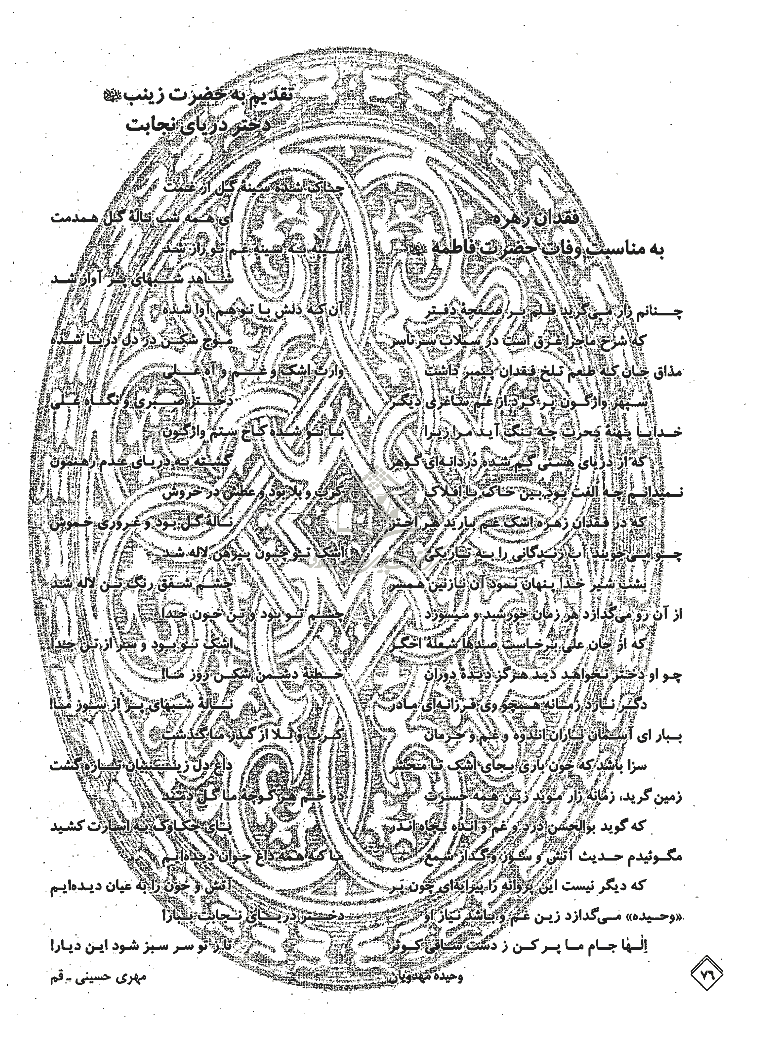 فقدان زهره
به مناسبت وفات حضرت فاطمه
چنانم زار می‌گرید قلم بر صفحهٔ دفتر
که شرح ماجرا غرق است در سیلاب سرتاسر
مذاق جان که طعم تلخ فقدان پیمبر داشت
سپهر واژگون پر کرد از غم ساغری دیگر
خدایا پهنهٔ بحرت چه تنگ آید مر زیرا
که از دریای هستی گم شده دردانه‌ای گوهر
نمی‌دانم چه الفت بود بین خاک با افلاک
که در فقدان زهره اشک غم بارید هر اختر
چو می‌جویند آب زندگانی را به تاریکی
بشب شیر خدا پنهان نمود آن نازنین همسر
از آن رو می‌گدازد هر زمان خورشید و میسوزد
که از جان علی برخاست صدها شعلهٔ اخگر
چو او دختر نخواهد دید هرگز دیدهٔ دوران
دگر نارد زمانه همچو وی فرزانه‌ای مادر
ببار ای آسمان باران اندوه و غم و حرمان
سزا باشد که خون باری بجای اشک تا محشر
زمین گرید، زمانه زار موید زین همه حسرت
که گوید بوالحسن درد و غم و انده بچاه اندر
مگوئیدم حدیث آتش و سوز و گداز شمع
که دیگر نیست این پروانه را پیرانه‌ای چون پر
«وحیده» می‌گدازد زین غم و باشد نیاز او
الها جام ما پر کن ز دست ساقی کوثر
وحیده مهدویان
تقدیم به حضرت زینب
دختر دریای نجابت
چاک شده سینهٔ گل از غمت
ای همه شب نالهٔ گل همدمت
سینه به سینه غم تو راز شد
شاهد شبهای پر آواز شد
آن که دلش با تو هم آوا شده
موج شکن در دل دریا شده
وارث اشک و غم و آه علی
دختر صبری و نگاه علی
با تو شده کاخ ستم واژگون
گشته به دریای عدم رهنمون
کرب و بلا بود و عطش در خروش
نالهٔ گل بود و غروری خموش
اشک تو چون پیرهن لاله شد
چشم شفق رنگ تن لاله شد
چشم تو بود و تن خون خدا
اشک تو بود و سر از تن جدا
خطبهٔ دشمن شکن روز ما!
نالهٔ شبهای پر از سوز ما!
کرب و بلا از گذر ما گذشت
داغ دل زینبیان تازه گشت
زخم بر کوچهٔ ما گل دمید
پای چکاوک به اسارت کشید
ما که همه داغ جوان دیده‌ایم
آتش و خون را به عیان دیده‌ایم
دختر دریای نجابت بیا!
تا ز تو سر سبز شود این دیار!
مهری حسینی - قم
۷۶